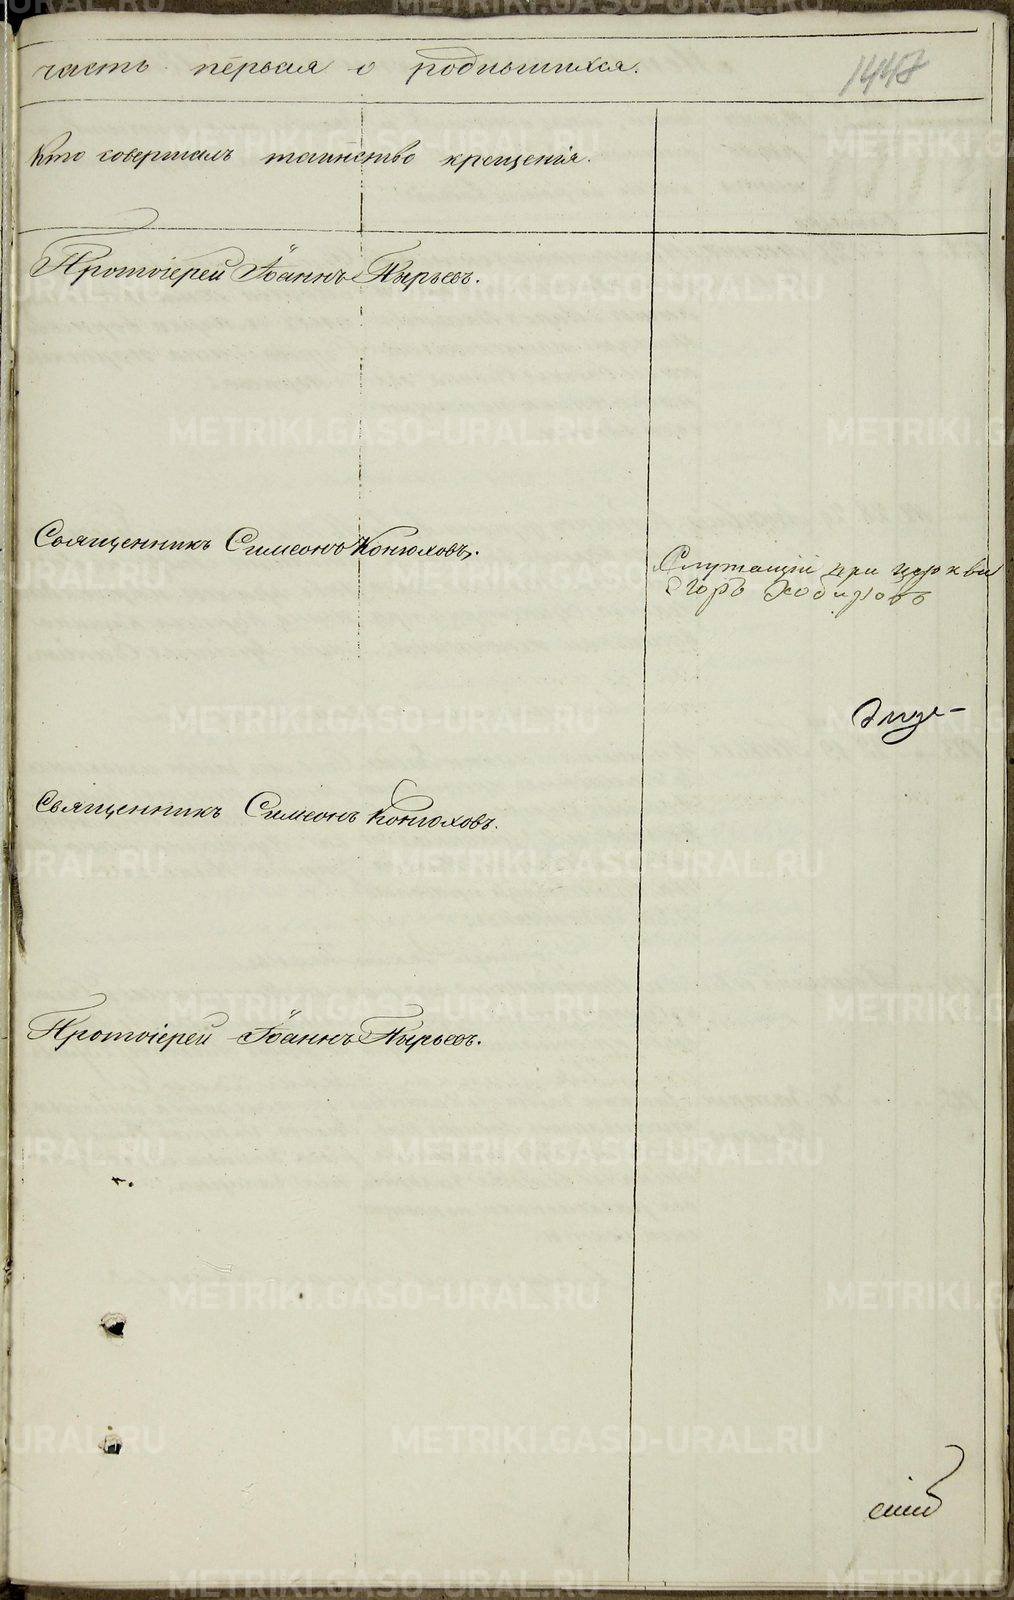 часть первая о родившихся.
1447
Кто совершалъ таинство крещенія.
Протоіерей Іоаннъ Пырьевъ.
Священникъ Симеонъ Конюховъ.
Служащій при церкви
Егоръ
Священникъ Симеонъ Конюховъ.
Протоіерей Іоаннъ Пырьевъ.
METRIKI.GASO-URAL.RU